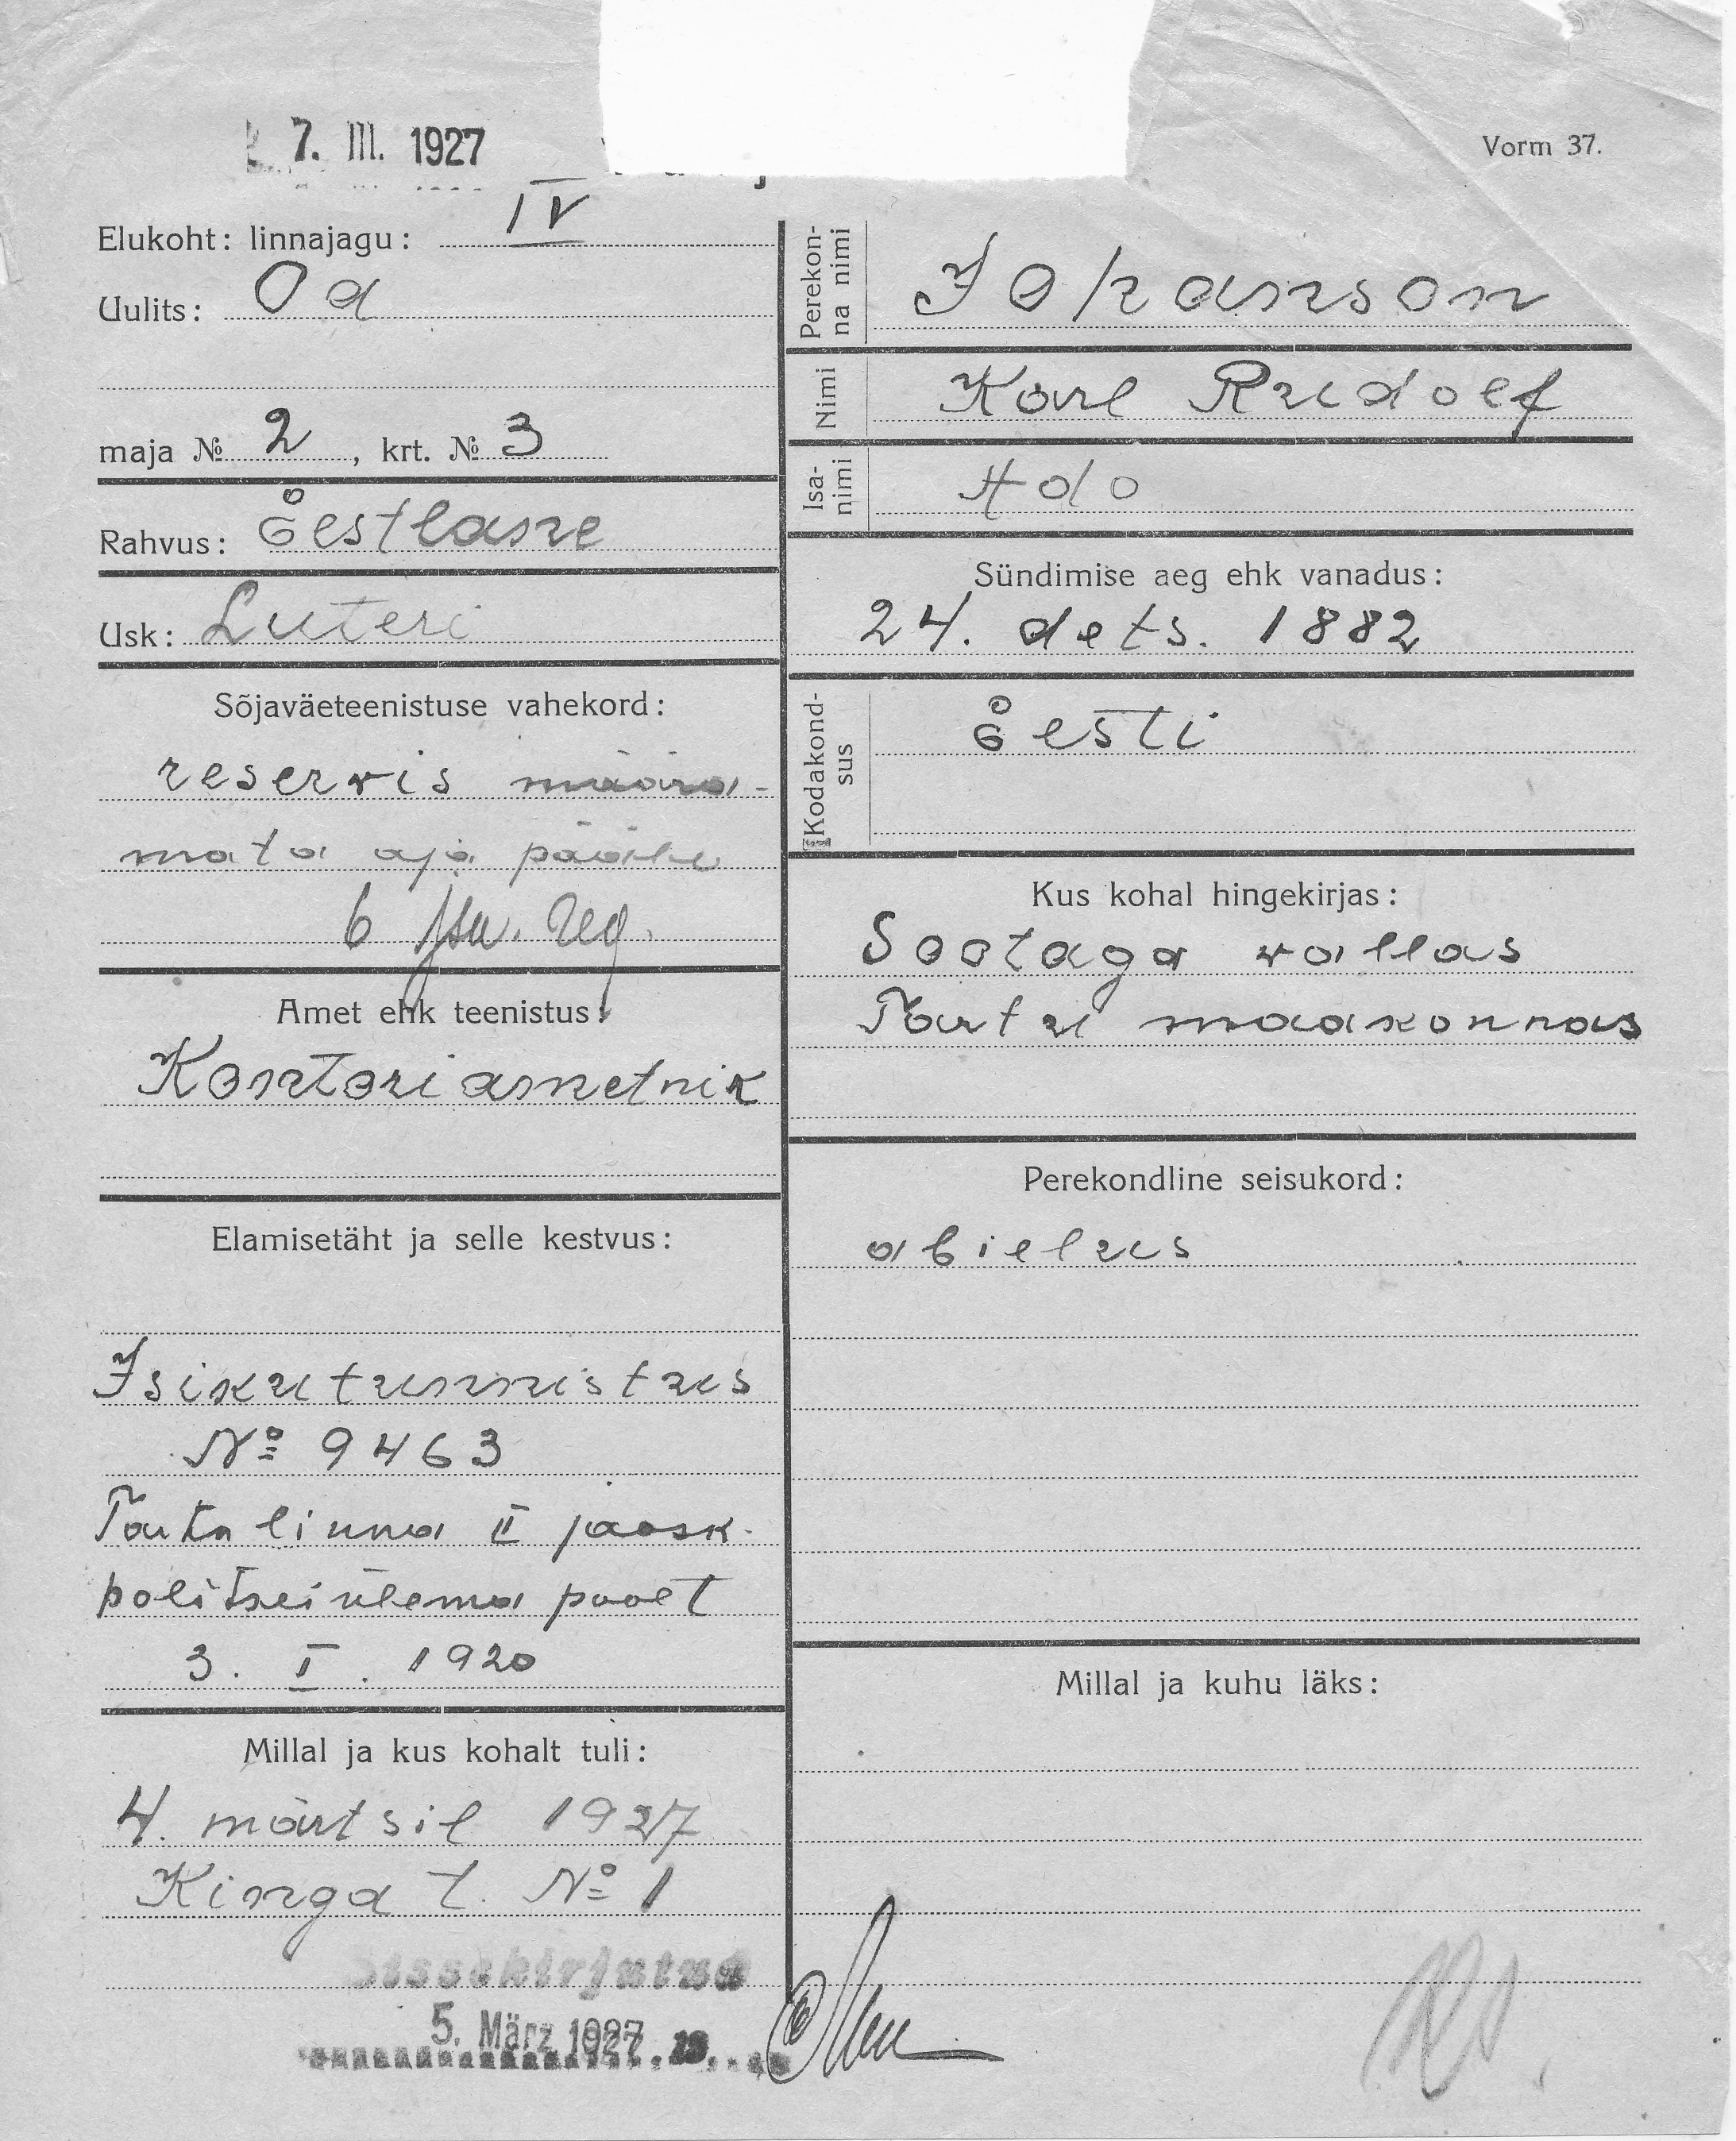 7. III. 1927
Vorm 37.
Elukoht: linnajagu: IV
Uulits: Oa
maja № 2, krt. № 3
Rahvus: Eestlane
Usk: Luteri
Sõjaväeteenistuse vahekord:
reservis määra-
mata aja pääle
6
Amet ehk teenistus:
Kontoriametnik
Elamisetäht ja selle kestvus:
Isikutunnistus
№ 9463
Tartu linna II jaosk.
politseiülema poolt
3. I. 1920
Millal ja kus kohalt tuli:
4. märtsil 1927
Kinga t. № 1
Sissekirjutud
5. März 1927
Perekon-
na nimi
Johanson
Nimi
Karl Rudolf
Isa-
nimi
Ado
Sündimise aeg ehk vanadus:
24. dets. 1882
Kodakond-
sus
Eesti
Kus kohal hingekirjas:
Sootaga vallas
Tartu maakonnas
Perekondline seisukord:
abielus
Millal ja kuhu läks: